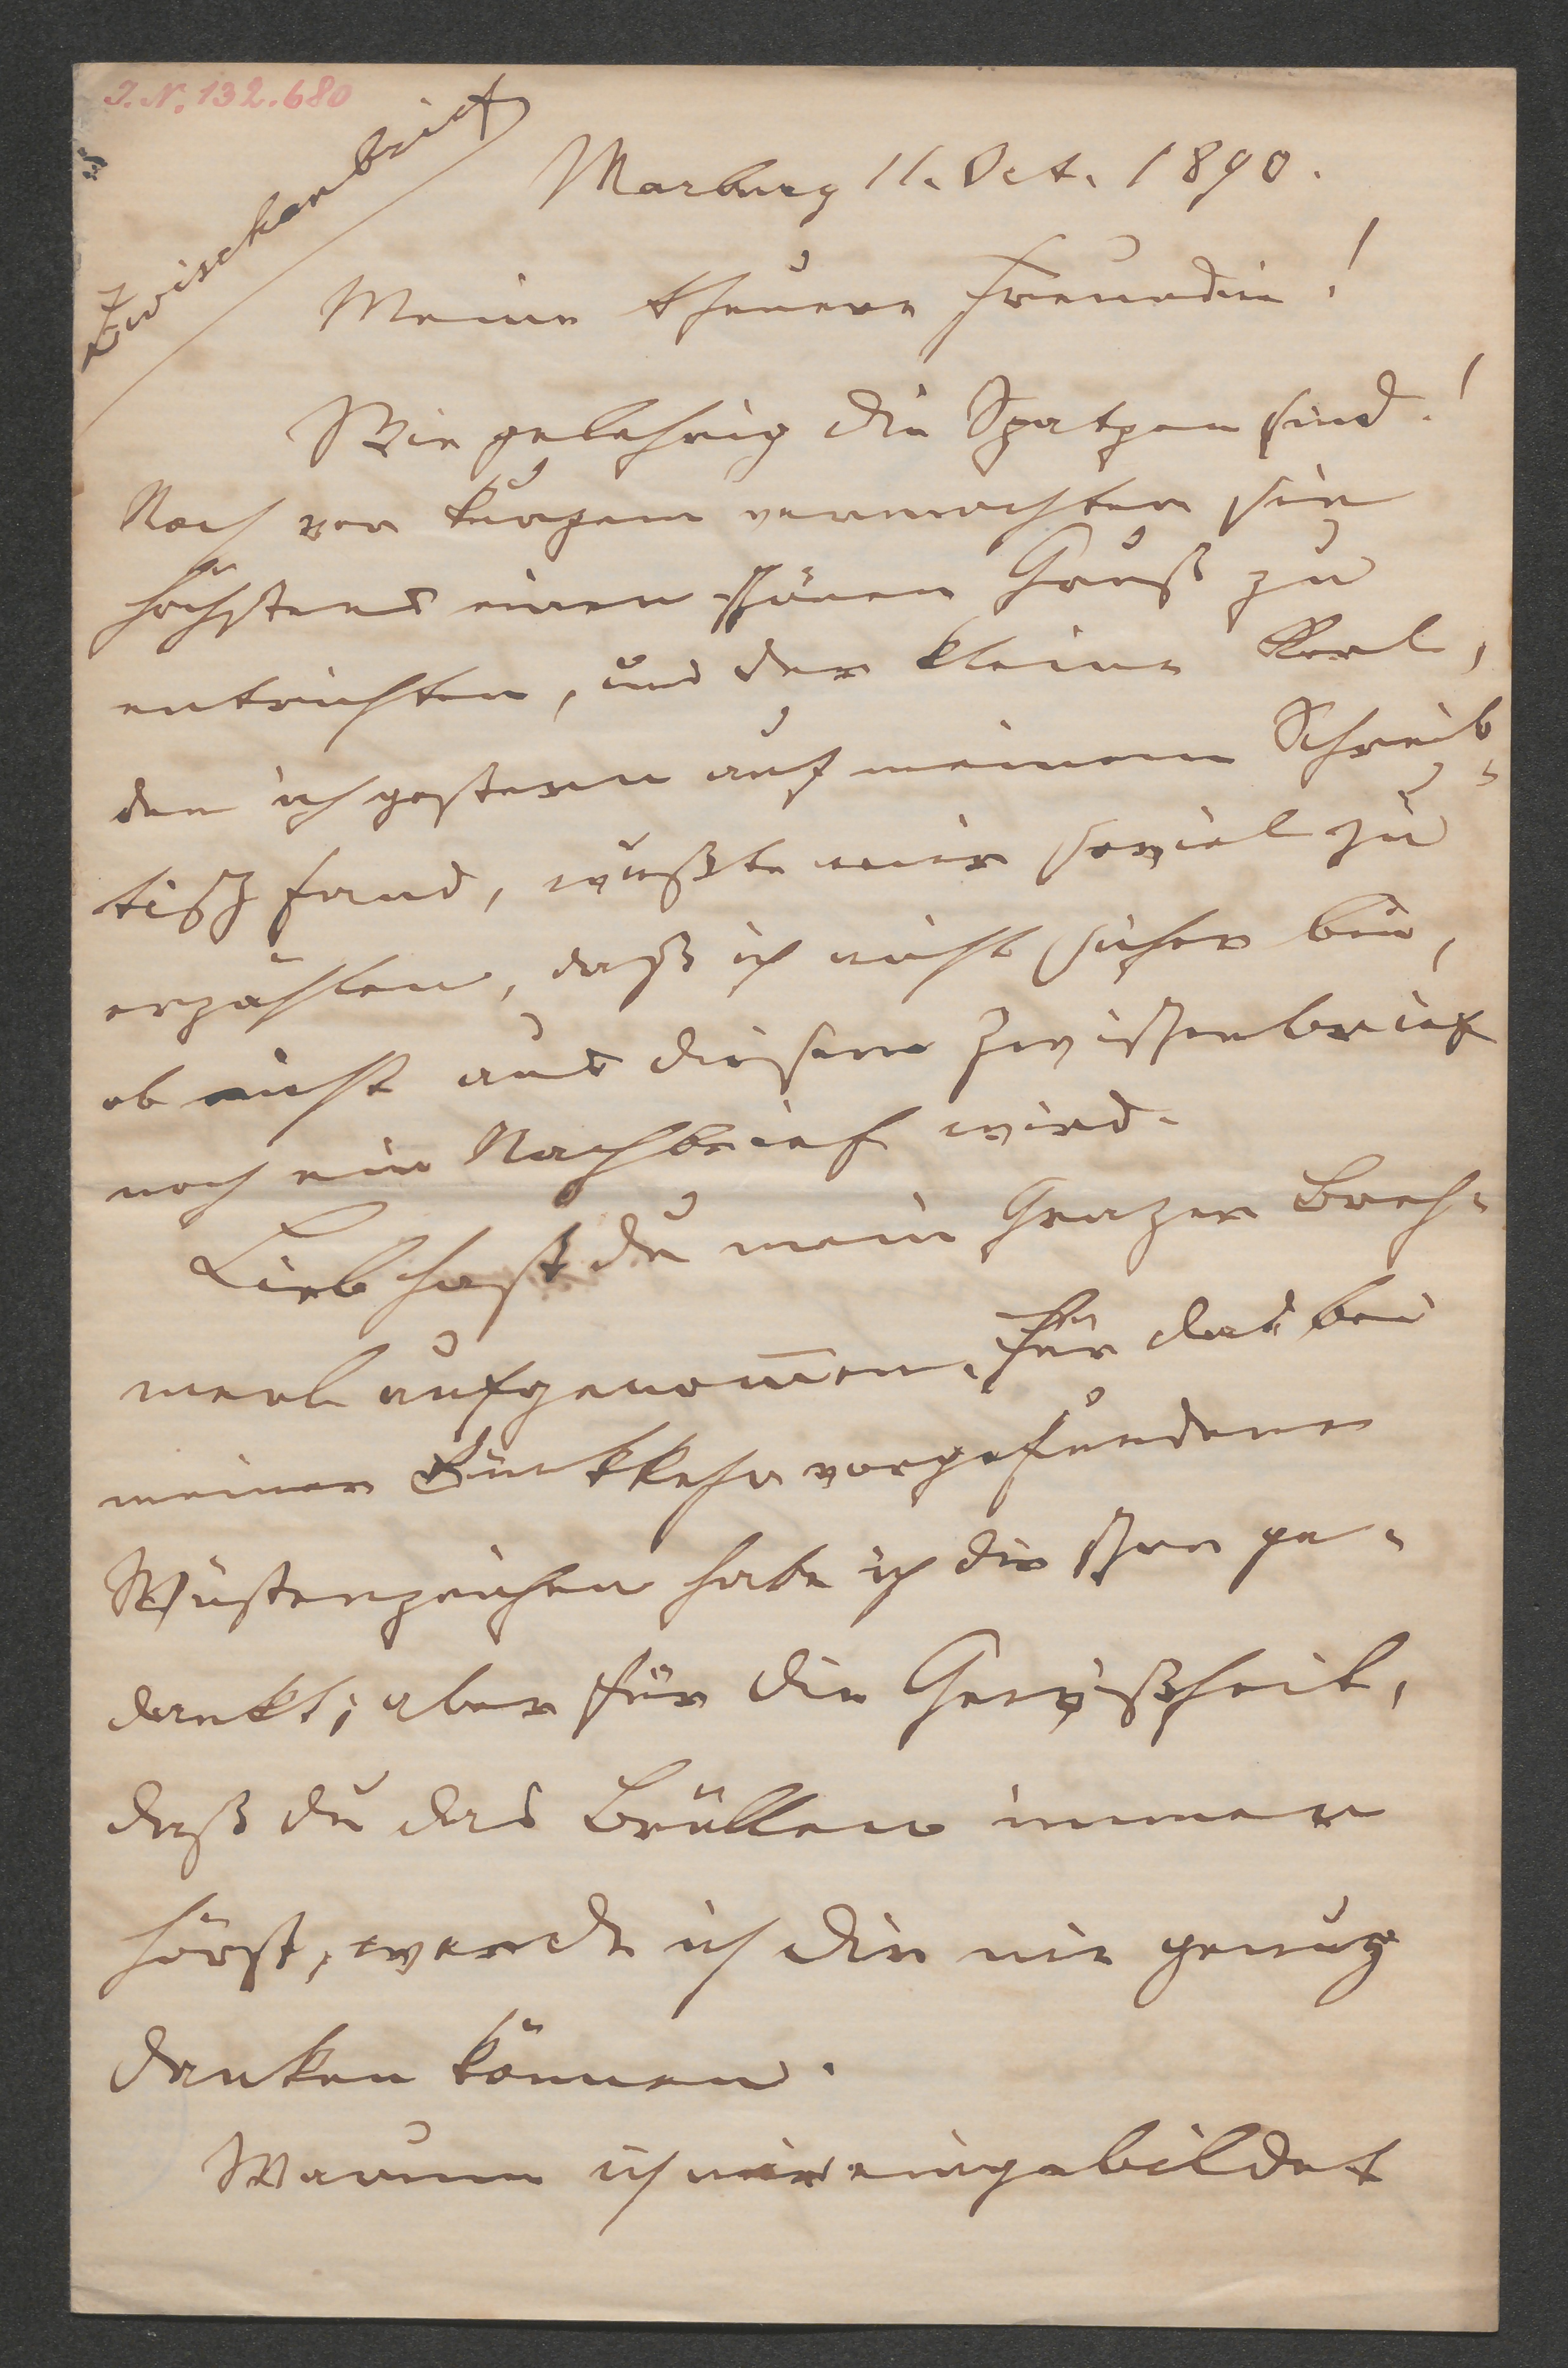 I.N. 132.680
Zwischenbrief
Marburg 11. Oct. 1890.
Meine theuere Freundin!
Wie gelehrig die Spatzen sind!
Noch vor kurzem vermochten sie
höchstens einen schönen Gruß zu
entrichten, und der kleine Kerl,
den ich gestern auf meinem Schreib-
tisch fand, wußte mir soviel zu
erzählen, daß ich nicht sicher bin,
ob nicht aus diesem Zwischenbrief
noch ein Nachbrief wird.
Lieb hast du mein Grazer
aufgenom̅en. Für das bei
meiner Rückkehr vorgefundene
Wüstenzeichen habe ich dir schon ge-
dankt; aber für die Gewißheit,
daß du das Brüllen immer
hörst, werde ich dir nie genug
danken können.
Warum ich mir eingebildet